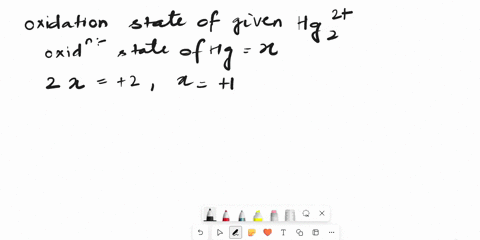 oxidation state of given Hg₂²⁺
oxidⁿ state of Hg = x
2x = +2, x = +1